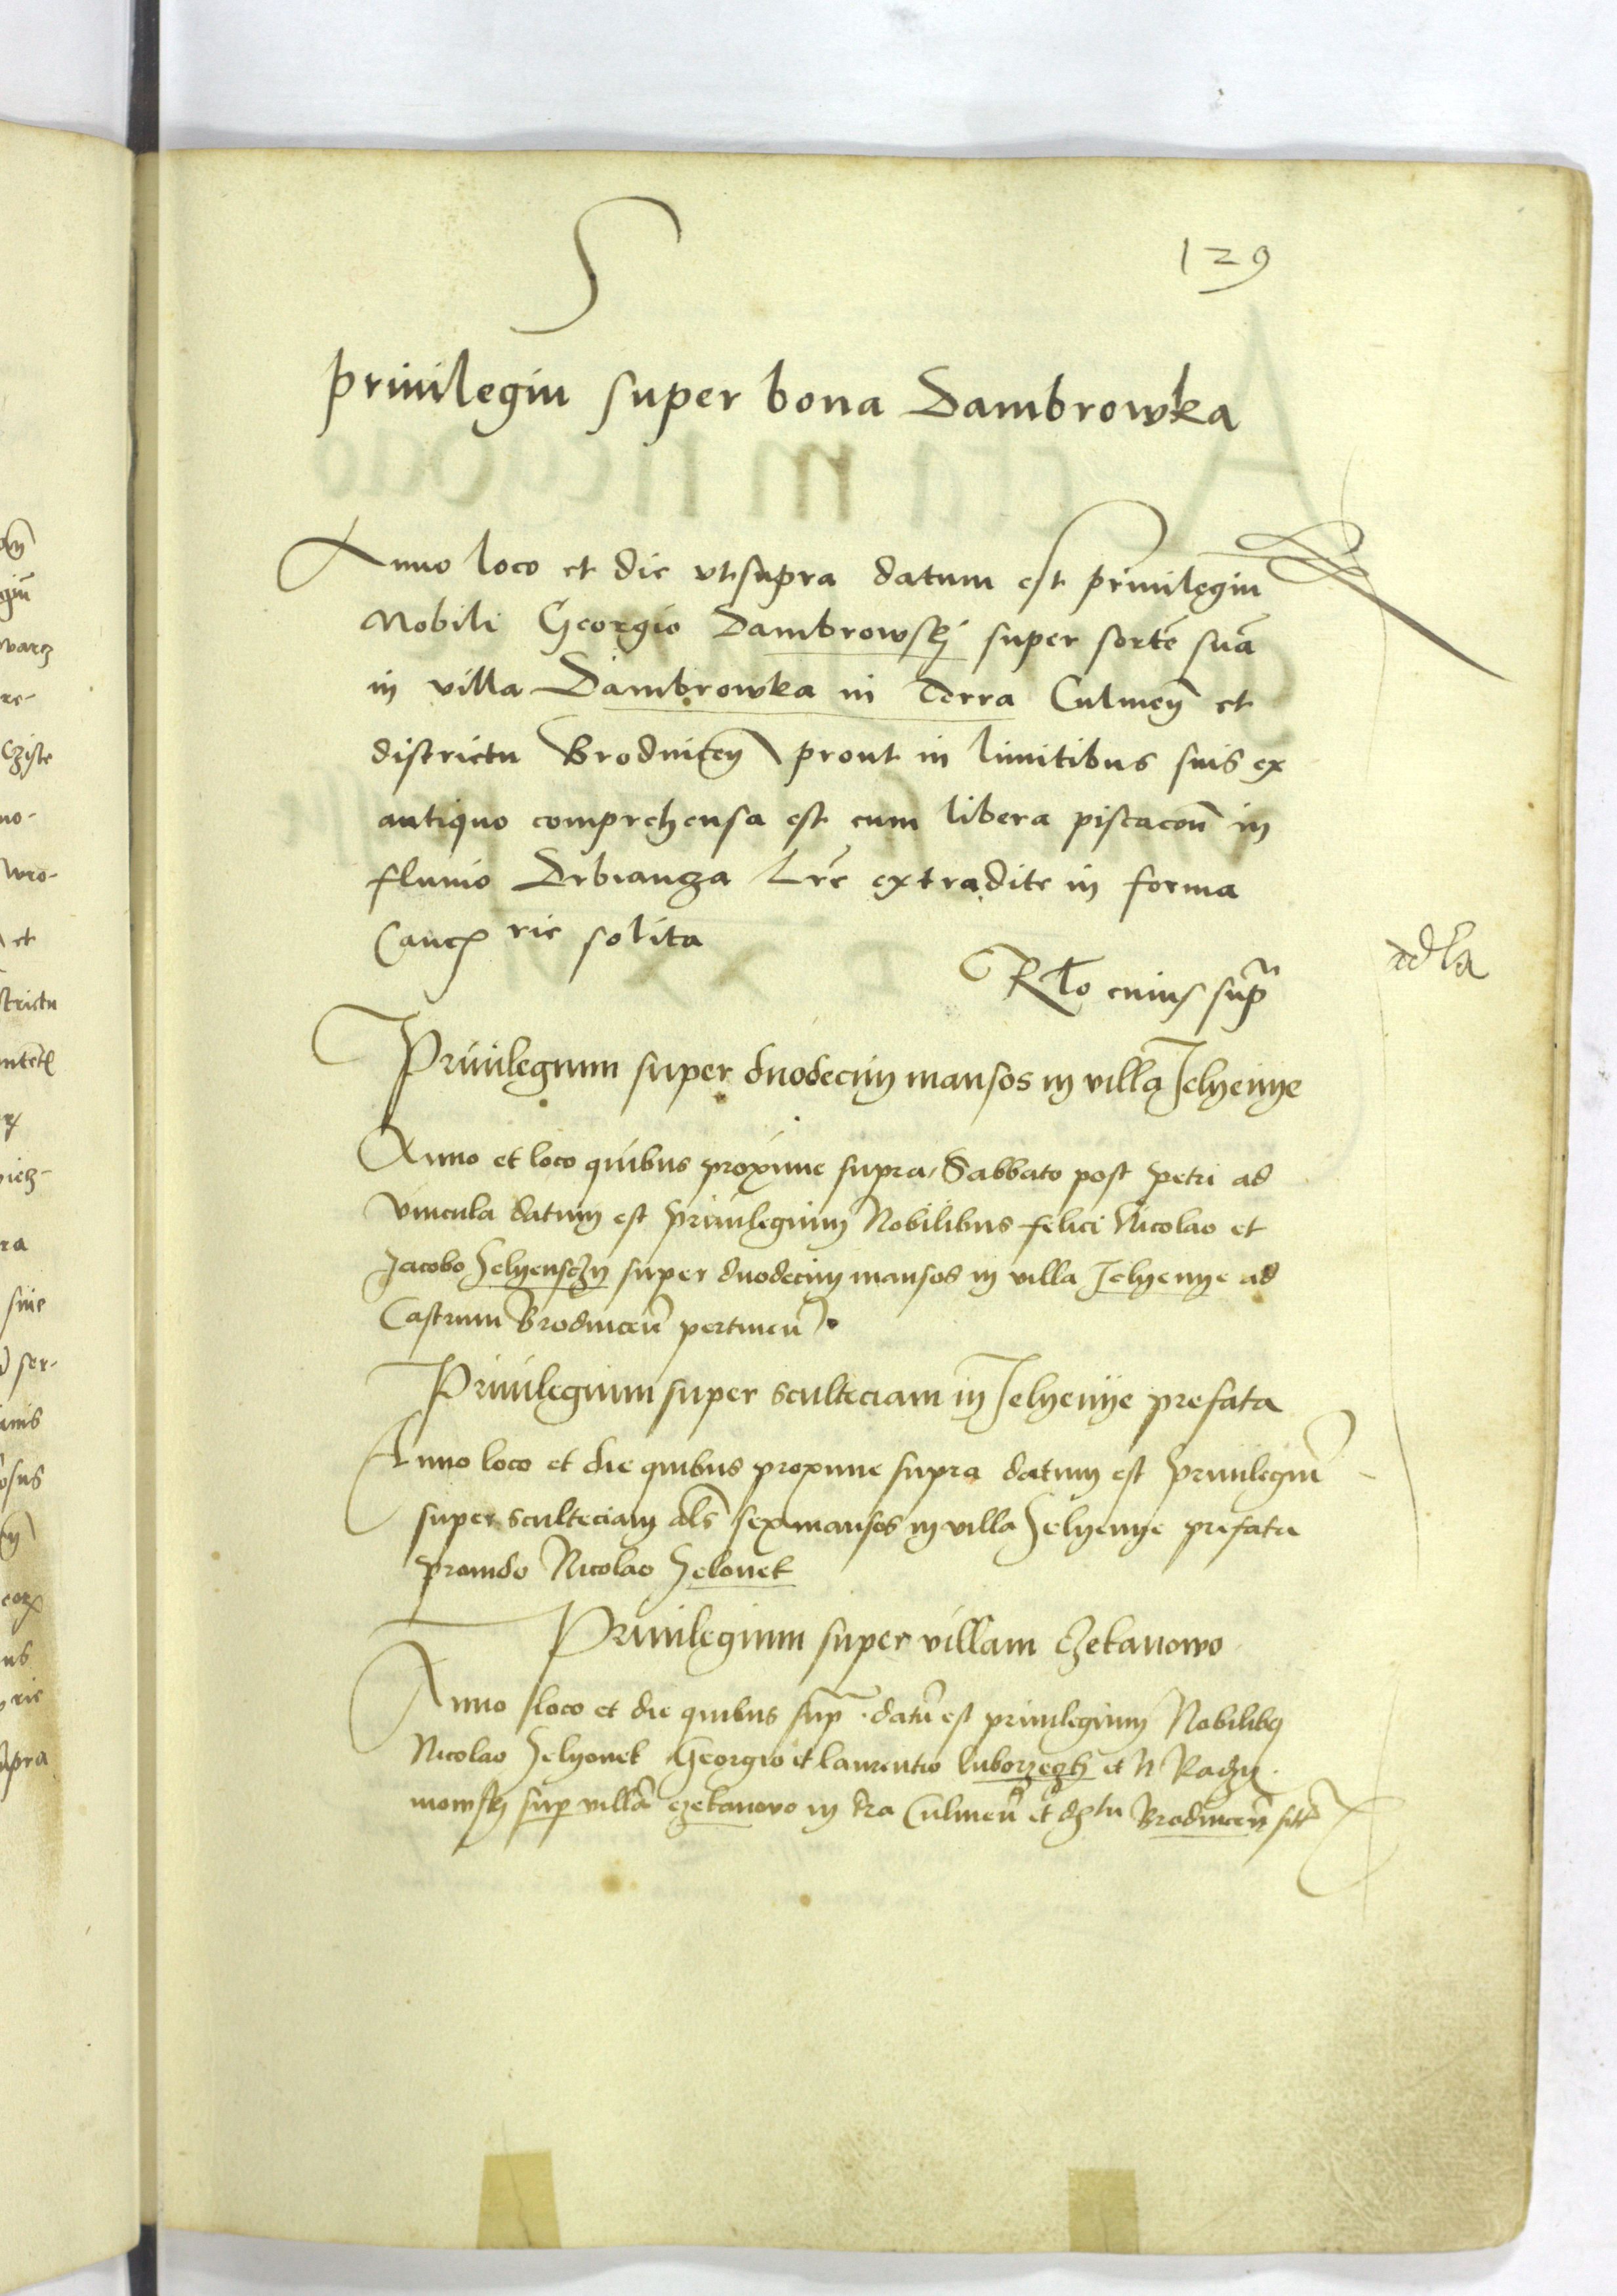 129
Priuilegiu super bona Dambrowka
Anno loco et die vtsupra datum est priuilegiu
Nobili Georgio Dambrowskj super sortē suā
in villa Dambrowka in Terra Culmen̄ et
districtu Brodnicen̄ prout in limitibus suis ex
antiquo comprehensa est cum libera piscacōn in
fluuio Drbianza Lr̄e extradite in forma
Canc rie solita
Rto cuius sup̄
Priuilegium super duodecim mansos in villa Jelyenye
Anno et loco quibus proxime supra, Sabbato post Petri ad
vincula datum est priuilegium Nobilibus felici Nicolao et
Jacobo Jelyensczy super duodecim mansos in villa Jelyenye ad
Castrum Brodnicen̄ pertinen̄.
Priuilegium super sculteciam in Jelyenye prefata
Anno loco et die quibus proxime supra datum est priuilegiū
super sculteciam als sex mansos in villa Jelyenye prefata
prouido Nicolao Jelonek
Priuilegium super villam czekanowo
Anno loco et die quibus sup̄. datū est priuilegium Nobilibq
Nicolao Jelyonek Georgio et laurentio et N
sup villā czekanowo in tra Culmen̄ et Brodnicen̄